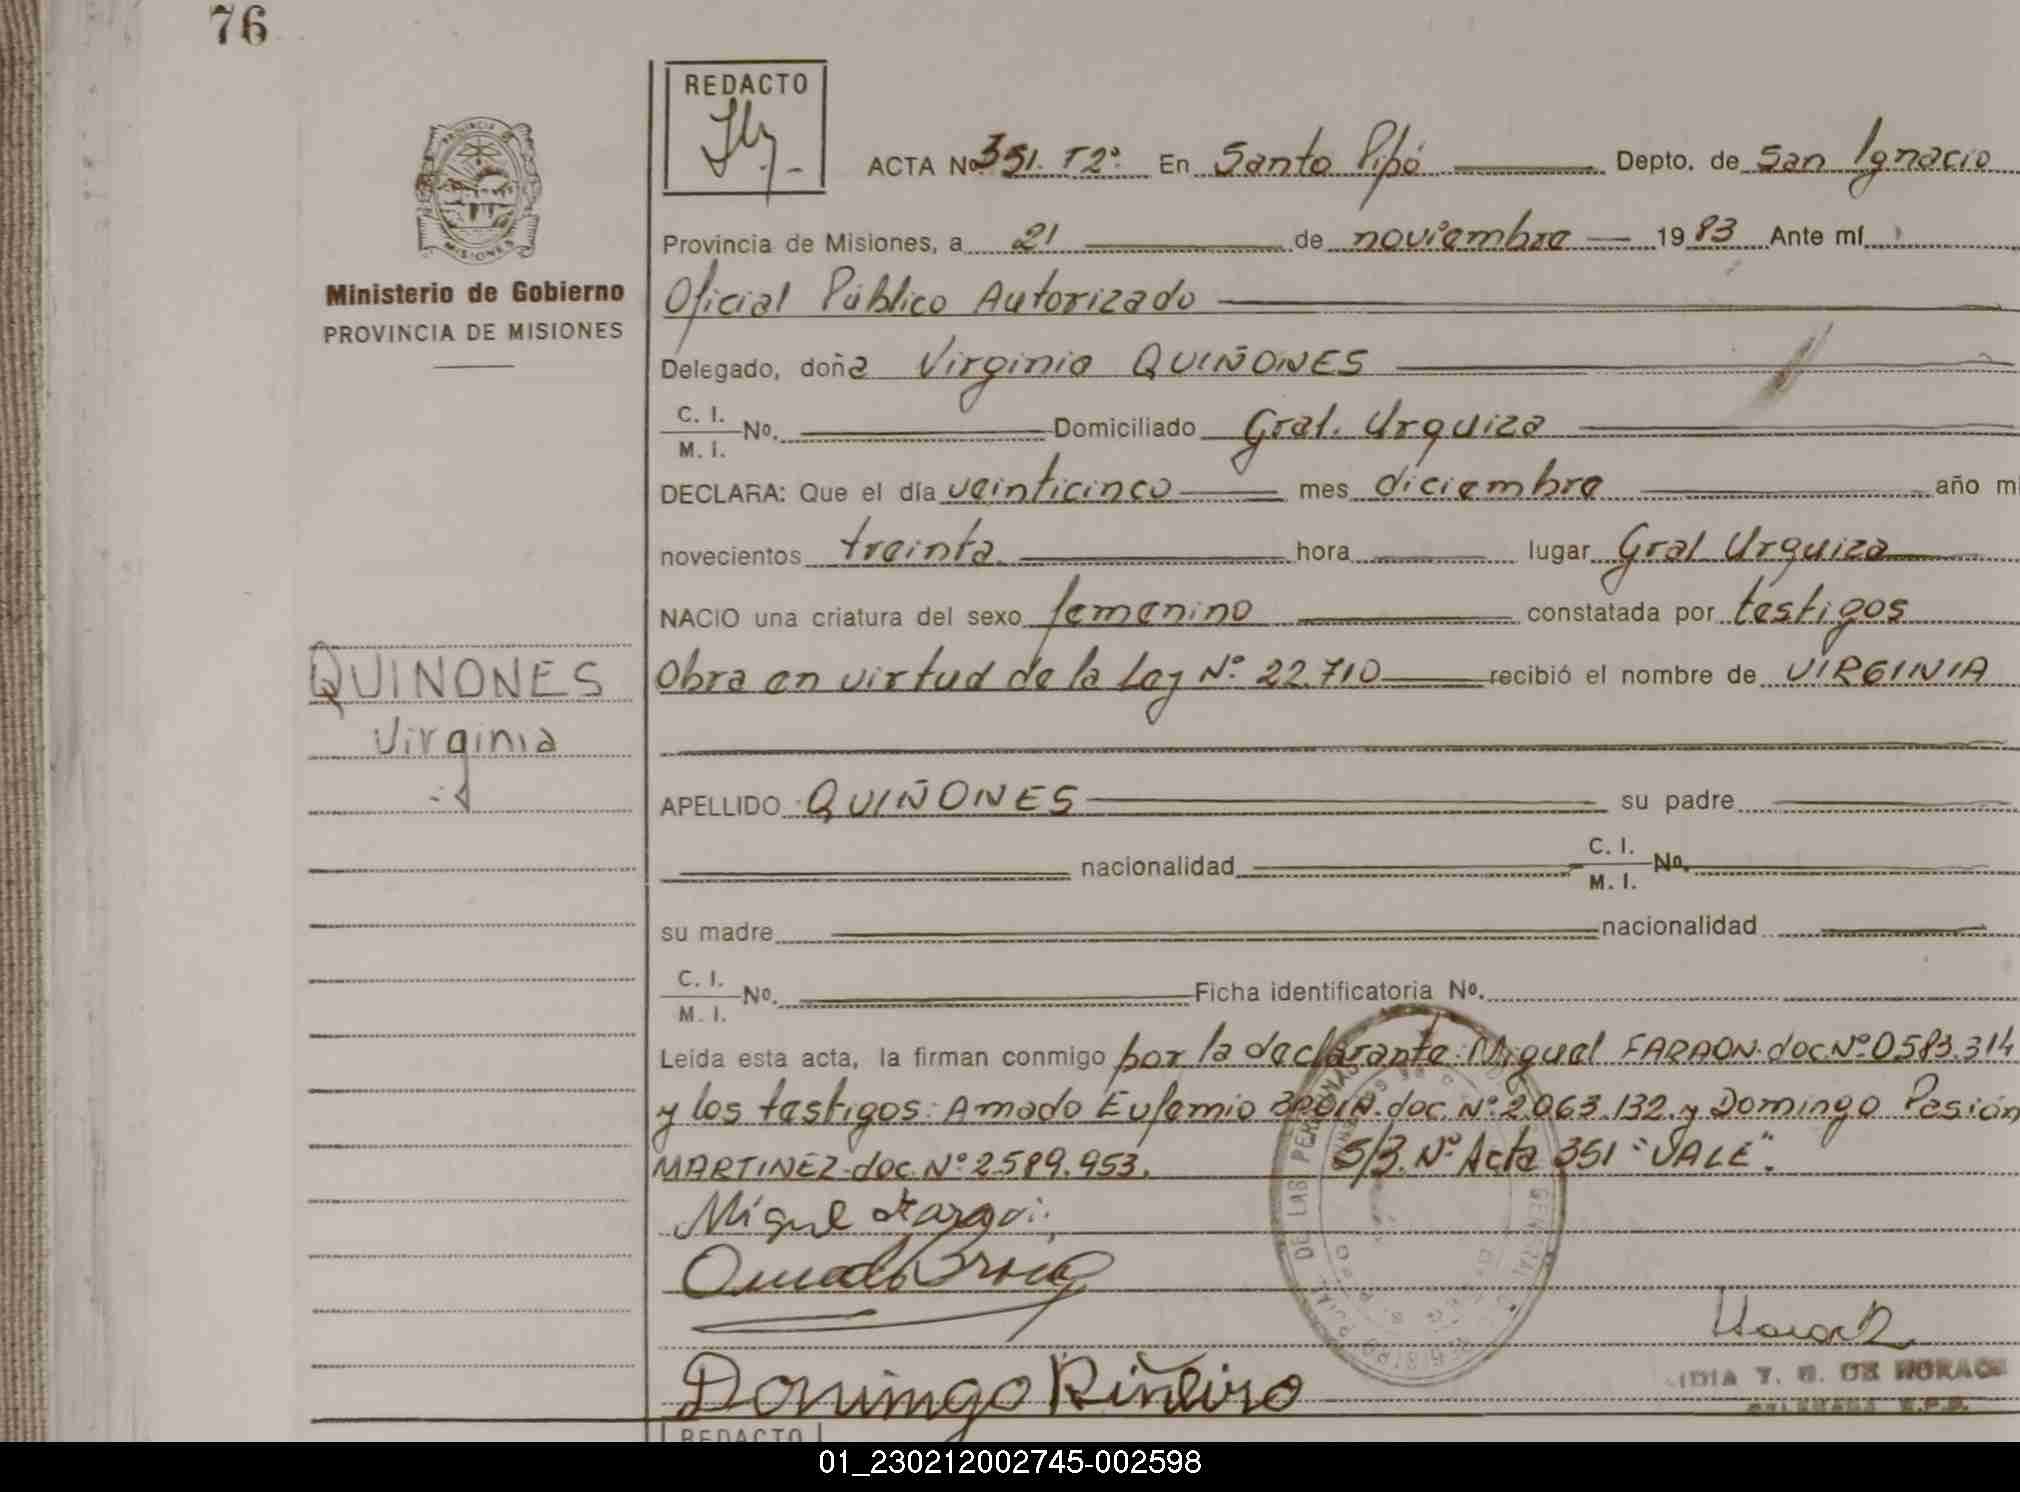 76
REDACTO
ACTA Nº 351. T2º. En Santo Pipó Depto. de San Ignacio
Provincia de Misiones, a 21 de noviembre 1983 Ante mí
Ministerio de Gobierno
PROVINCIA DE MISIONES
Oficial Público Autorizado
Delegado, doña Virginia QUIÑONES
C. I. M. I. Nº. Domiciliado Gral. Urquiza
DECLARA: Que el día veinticinco mes diciembre año mi
novecientos treinta hora lugar Gral Urquiza
NACIO una criatura del sexo femenino constatada por testigos
QUINONES
Virginia
Obra en virtud de la Ley Nº 22.710 recibió el nombre de VIRGINIA
APELLIDO QUIÑONES su padre
nacionalidad C. I. M. I. Nº.
su madre nacionalidad
C. I. M. I. Nº. Ficha identificatoria Nº.
Leída esta acta, la firman conmigo por la declarante: Miguel FARAON. doc. Nº 0583.314
y los testigos: Amado Eufemio doc. Nº 2.063.132. y Domingo Pasión
MARTINEZ. doc. Nº 2.589.953. S/3. Nº Acta 351 "VALE".
DE LAS PERSONAS GENERAL
Domingo
DE
REDACTO
01_230212002745-002598